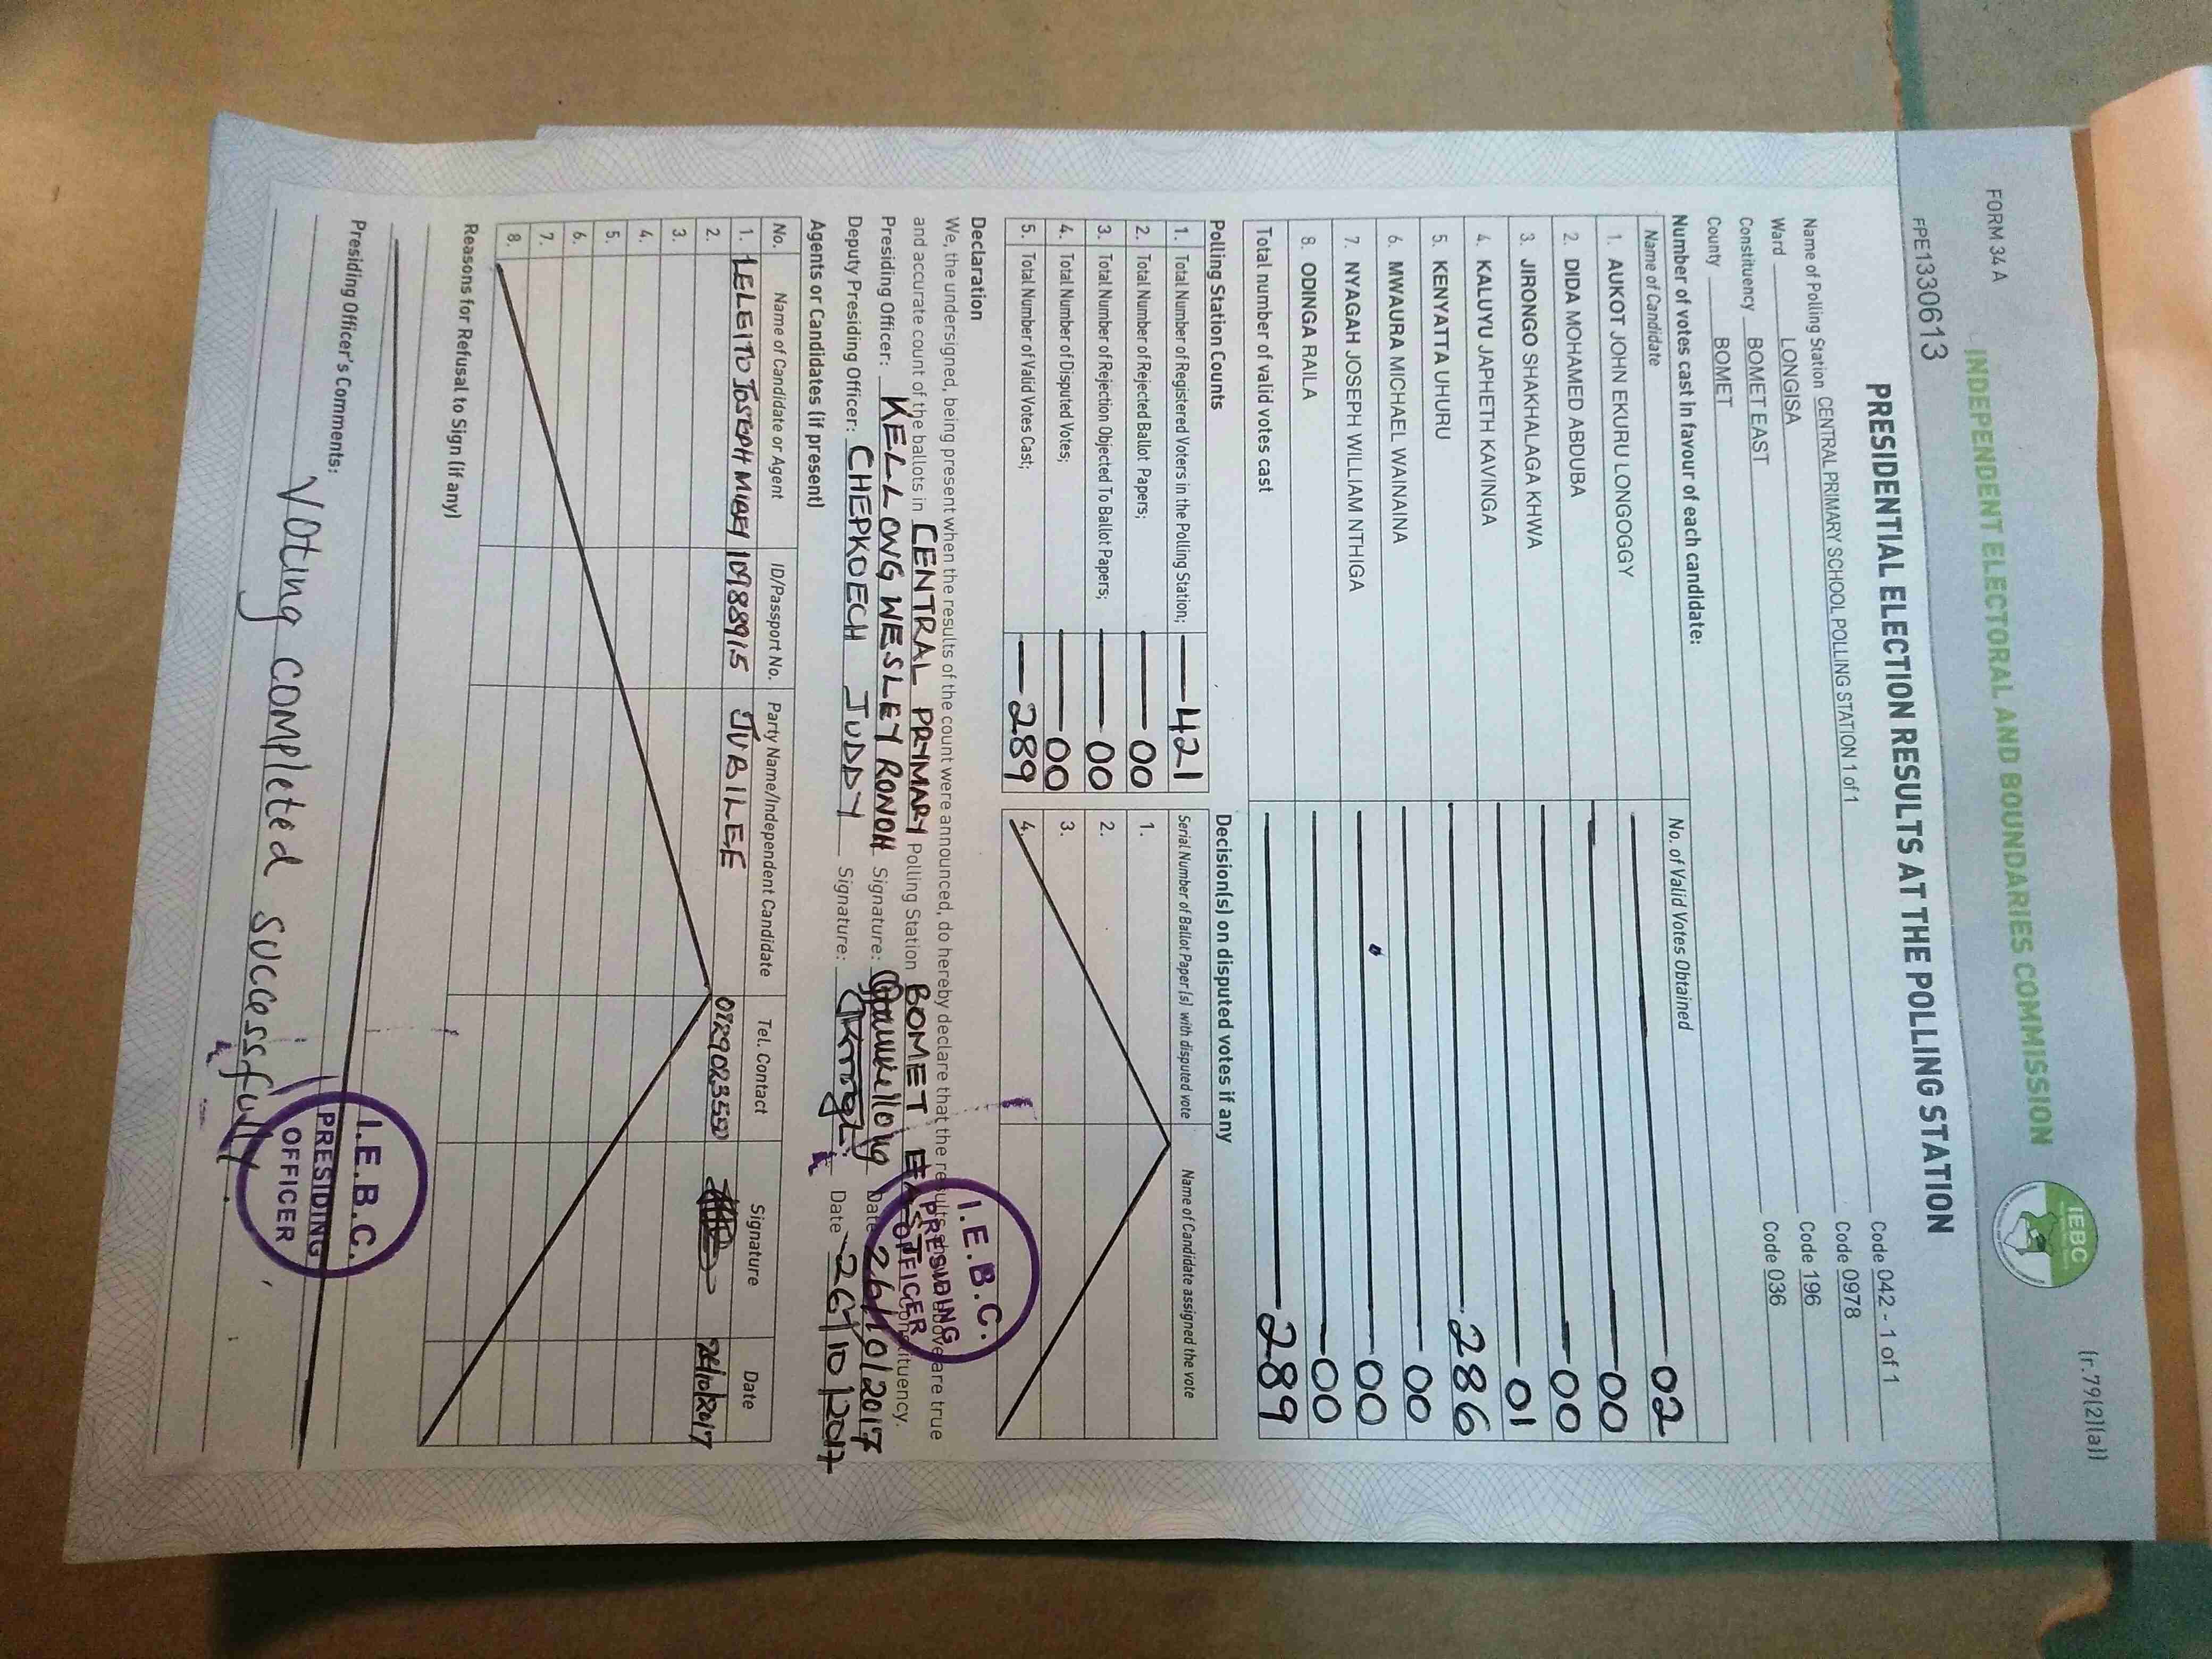 FORM 34 A
(r.79(2)(a))
INDEPENDENT ELECTORAL AND BOUNDARIES COMMISSION
IEBC
PRESIDENTIAL ELECTION RESULTS AT THE POLLING STATION
FPE1330613
Name of Polling Station CENTRAL PRIMARY SCHOOL POLLING STATION 1 of 1 Code 042 - 1 of 1
Ward LONGISA Code 0978
Constituency BOMET EAST Code 196
County BOMET Code 036
Number of votes cast in favour of each candidate:
Name of Candidate No. of Valid Votes Obtained
1. AUKOT JOHN EKURU LONGOGGY 02
2. DIDA MOHAMED ABDUBA 00
3. JIRONGO SHAKHALAGA KHWA 00
4. KALUYU JAPHETH KAVINGA 01
5. KENYATTA UHURU 286
6. MWAURA MICHAEL WAINAINA 00
7. NYAGAH JOSEPH WILLIAM NTHIGA 00
8. ODINGA RAILA 00
Total number of valid votes cast 289
Polling Station Counts
1. Total Number of Registered Voters in the Polling Station; 421
2. Total Number of Rejected Ballot Papers; 00
3. Total Number of Rejection Objected To Ballot Papers; 00
4. Total Number of Disputed Votes; 00
5. Total Number of Valid Votes Cast; 289
Decision(s) on disputed votes if any
Serial Number of Ballot Paper (s) with disputed vote Name of Candidate assigned the vote
1.
2.
3.
4.
Declaration
We, the undersigned, being present when the results of the count were announced, do hereby declare that the results shown above are true
and accurate count of the ballots in CENTRAL PRYMARY Polling Station BOMET EAST Constituency.
Presiding Officer: KELLOWG WESLEY RONOH Signature: Date 26/10/2017
Deputy Presiding Officer: CHEPKOECH JUDDY Signature: Date 26/10/2017
I.E.B.C.
PRESIDING
OFFICER
Agents or Candidates (if present)
No. Name of Candidate or Agent ID/Passport No. Party Name/Independent Candidate Tel. Contact Signature Date
1. JOSEPH JUBILEE 26/10/2017
2.
3.
4.
5.
6.
7.
8.
Reasons for Refusal to Sign (if any)
Presiding Officer's Comments:
Voting completed successfully.
I.E.B.C.
PRESIDING
OFFICER